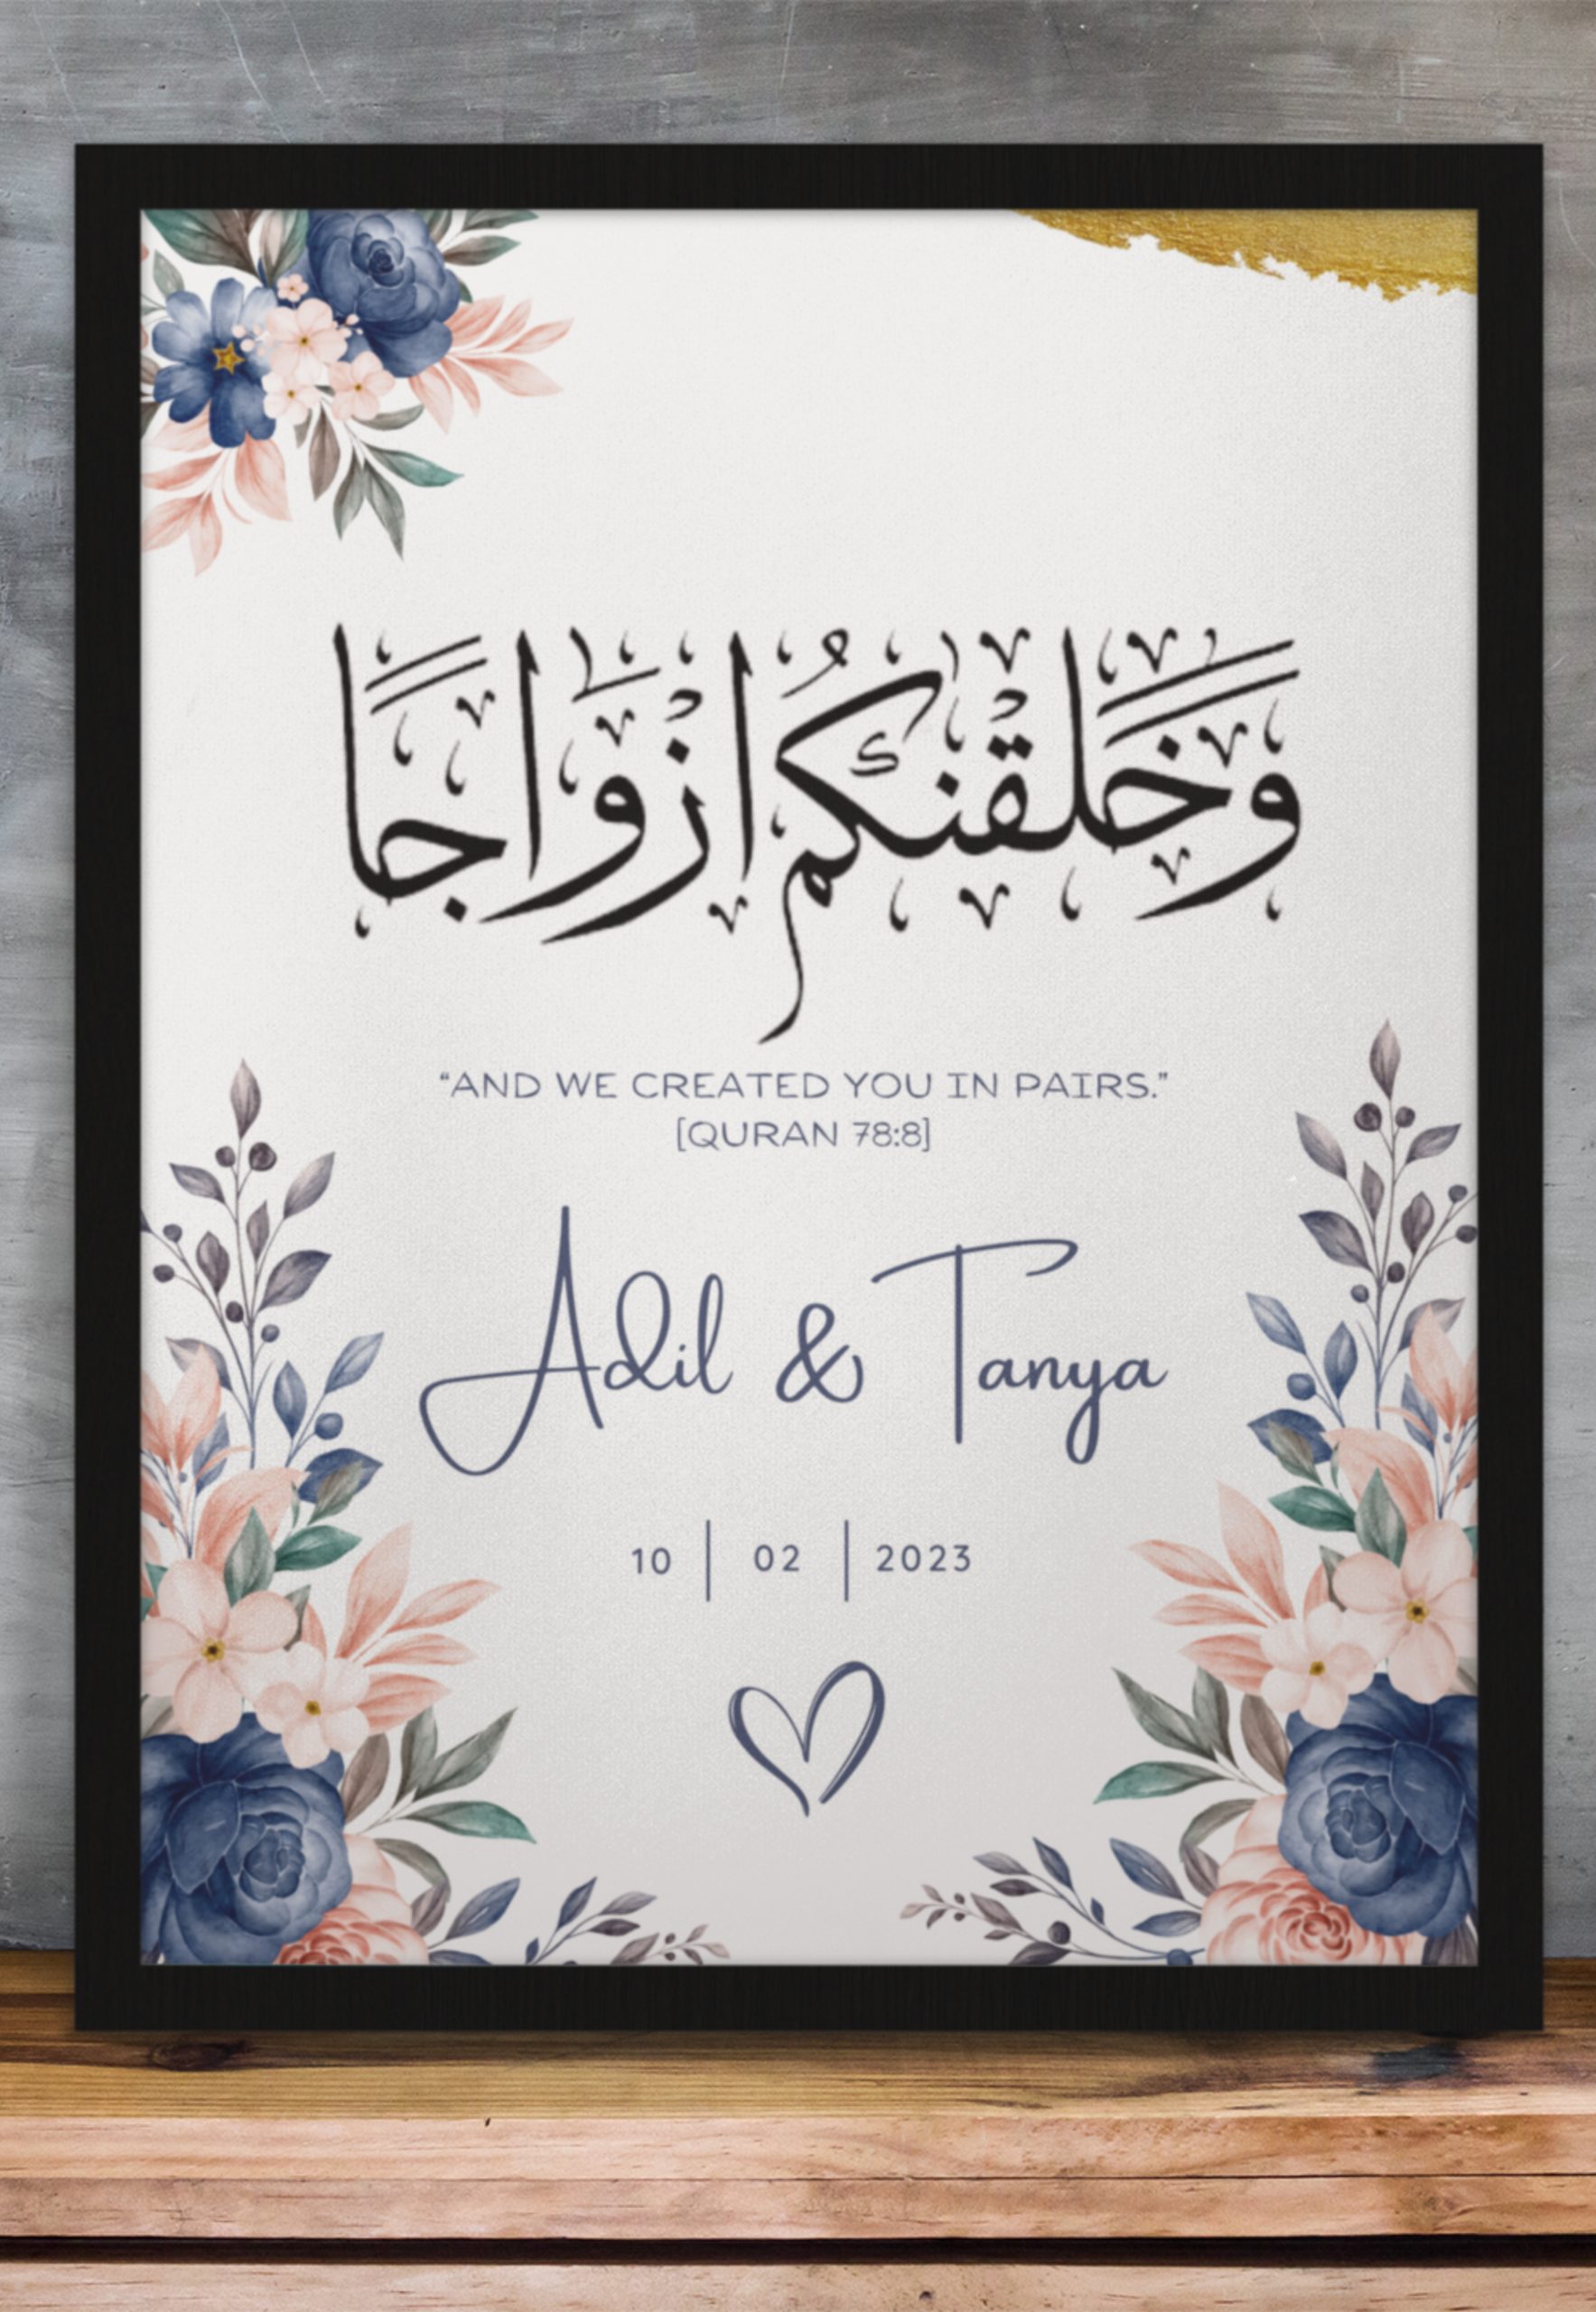 وَخَلَقْنٰكُمْ اَزْوَاجًا
“AND WE CREATED YOU IN PAIRS.”
[QURAN 78:8]
Adil & Tanya
10 | 02 | 2023